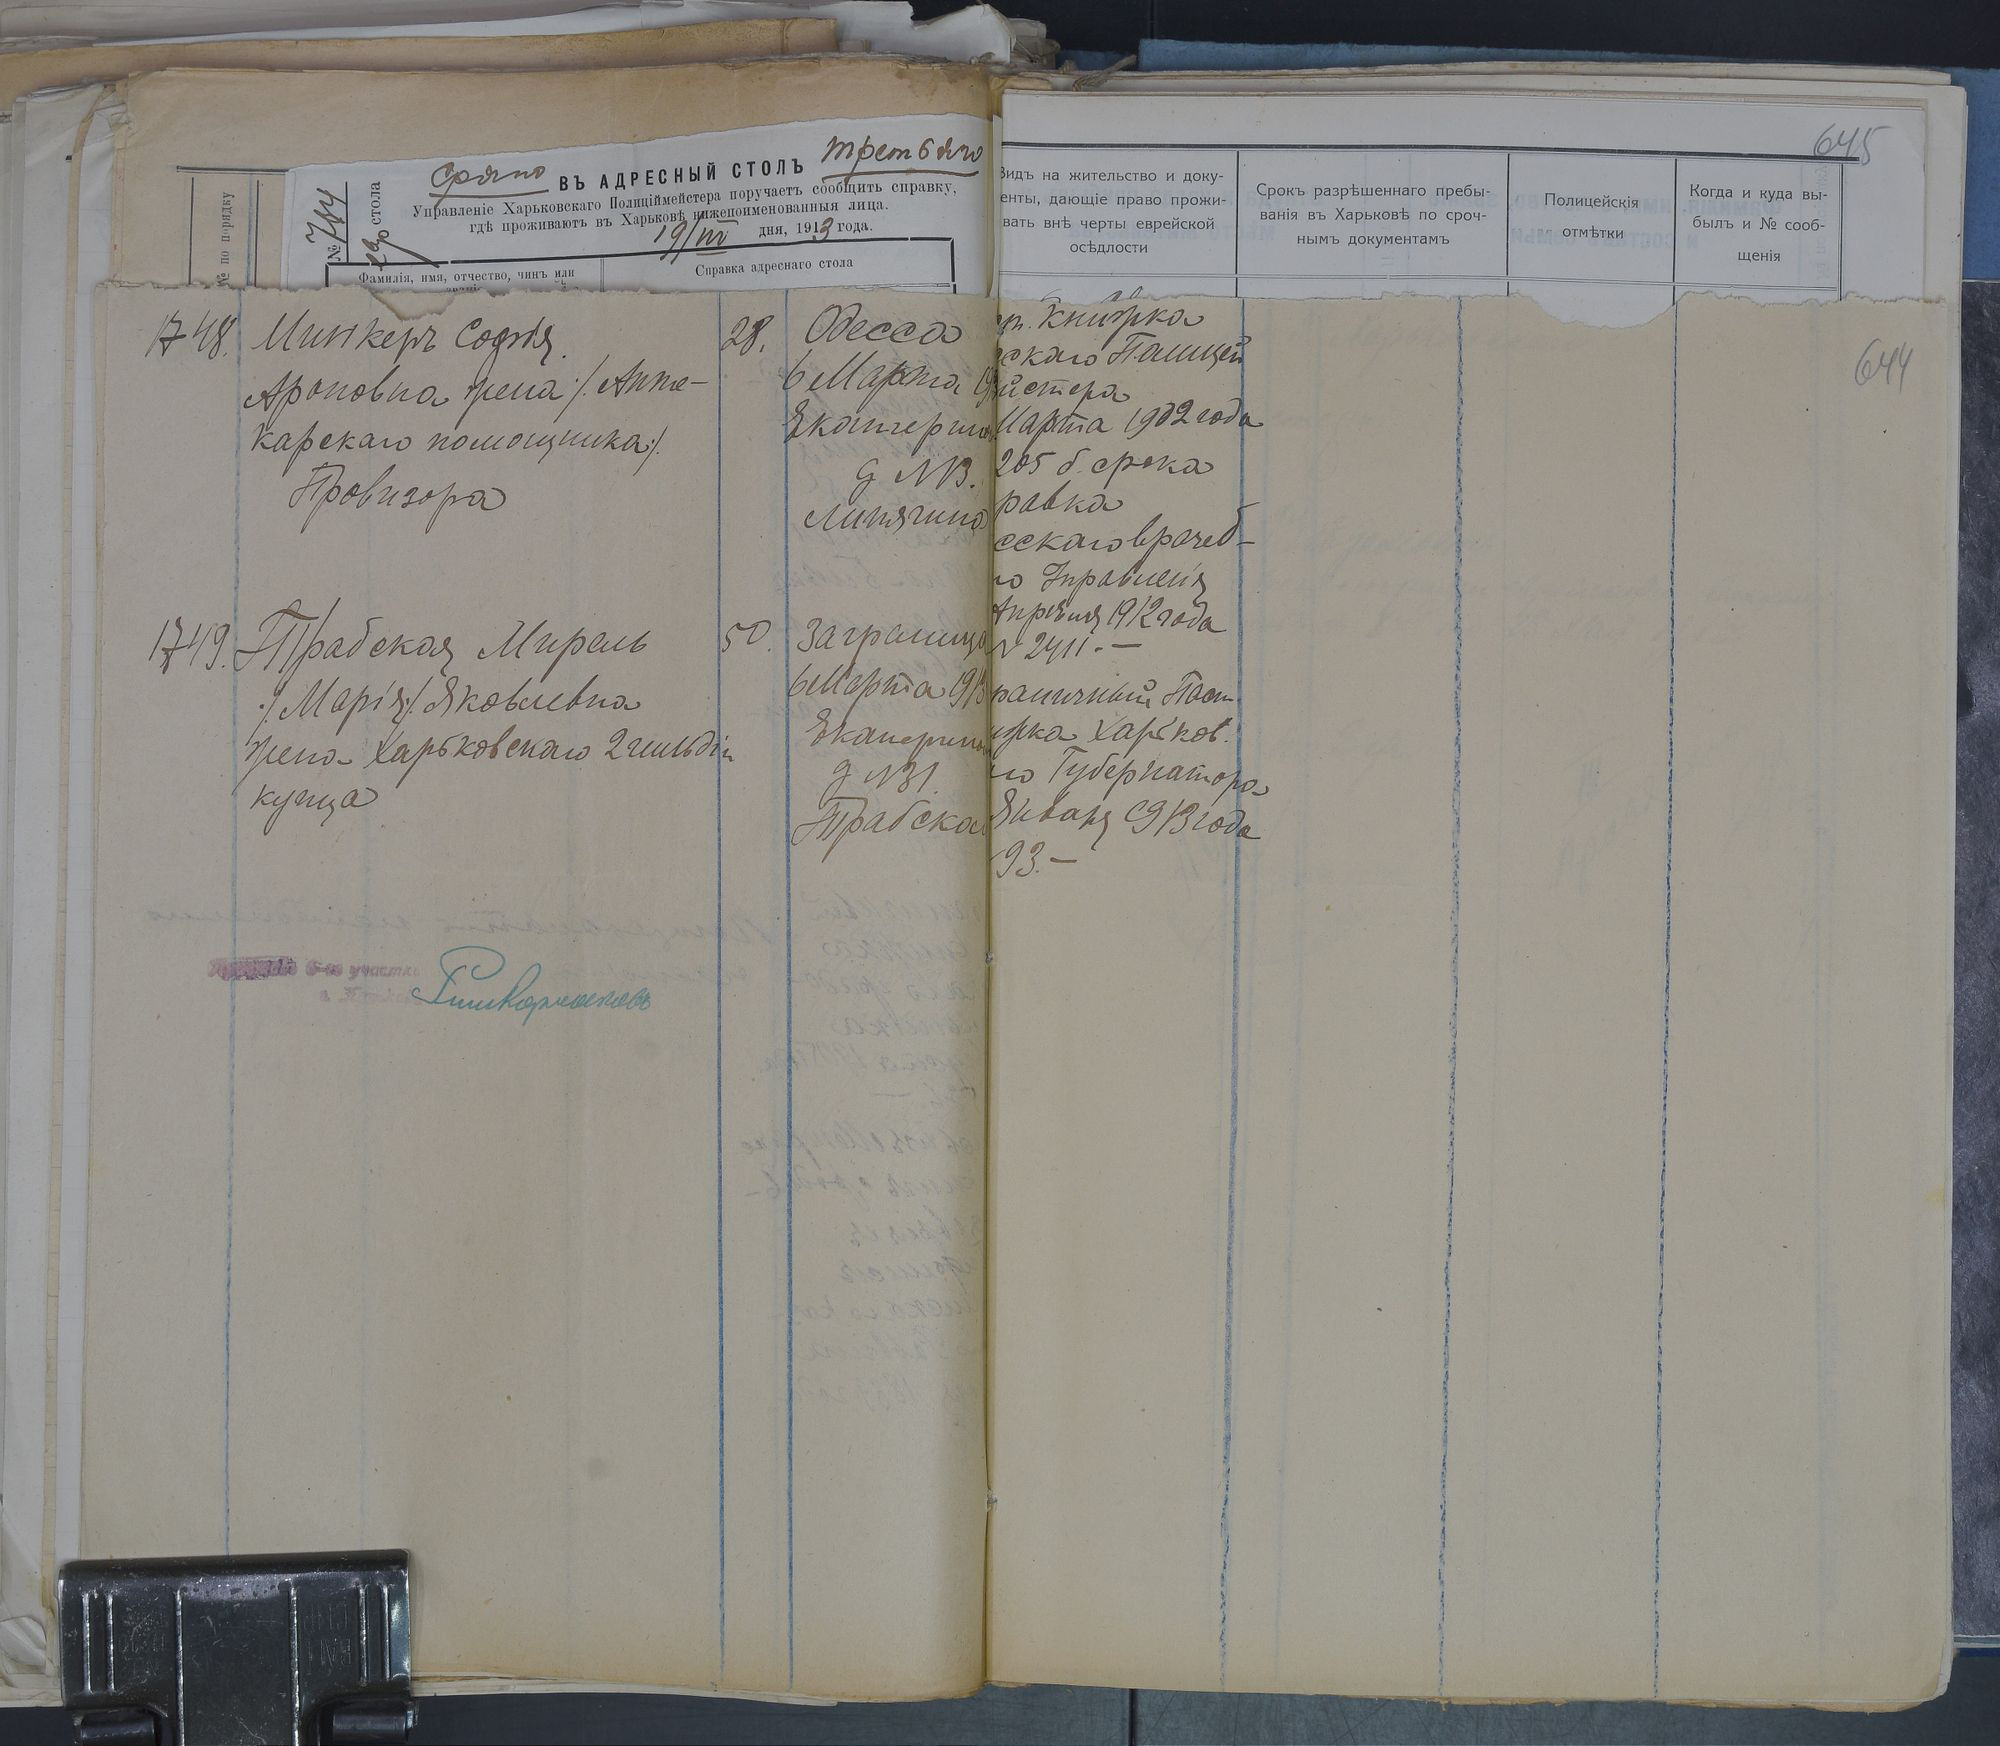 645
срочно
ВЪ АДРЕСНЫЙ СТОЛЪ
Управленіе Харьковскаго Полиціймейстера поручаетъ сообщить справку,
гдѣ проживаютъ въ Харьковѣ нижепоименованныя лица.
19/III дня, 1913 года.
№
стола
№ по порядку
Фамилія, имя, отчество, чинъ или
Справка адреснаго стола
Видъ на жительство и доку-
енты, дающіе право прожи-
вать внѣ черты еврейской
осѣдлости
Срокъ разрѣшеннаго пребы-
ванія въ Харьковѣ по сроч-
нымъ документамъ
Полицейскія
отмѣтки
Когда и куда вы-
былъ и № сооб-
щенія
644
1748. Минкеръ Софія
Ароновна жена /. Апте-
карскаго помощника/.
Провизора
28.
Одесса
6 Марта
Екатерино
д №3.
Липягина
книжка
скаго Полицей
йстера
Марта 1912 года
205 б. срока
равка
сскаго врачеб-
го Управленія
Апрѣля 1912 года
№ 2411.—
1749. Трабская Мирель
/. Марія/. Яковлевна
жена Харьковскаго 2 гильдіи
купца
50.
Заграница
6 Марта 1913
Екатерино
д №31.
Трабская
раничный Пасп
Харьков.
го Губернатора
Января 1913 года
93.—
6-го участка